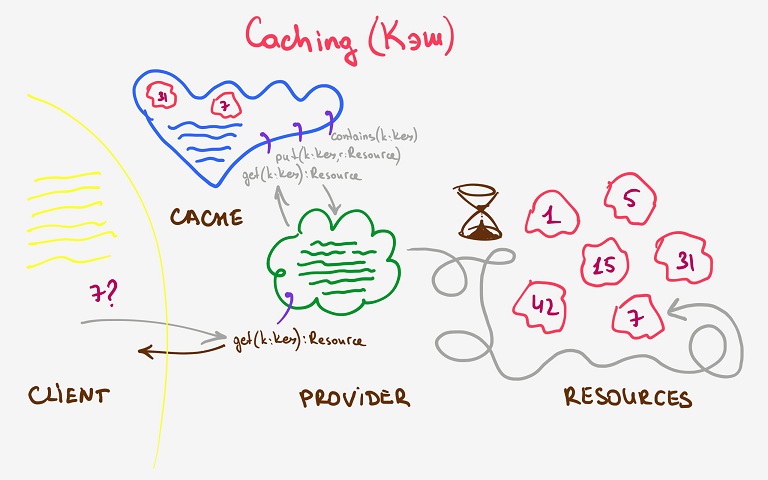 Caching (Кэш)
31
7
contains(k:Key)
put(k:Key,r:Resource)
get(k:Key):Resource
CACHE
1
5
15
31
42
7
7?
get(k:Key):Resource
CLIENT
PROVIDER
RESOURCES